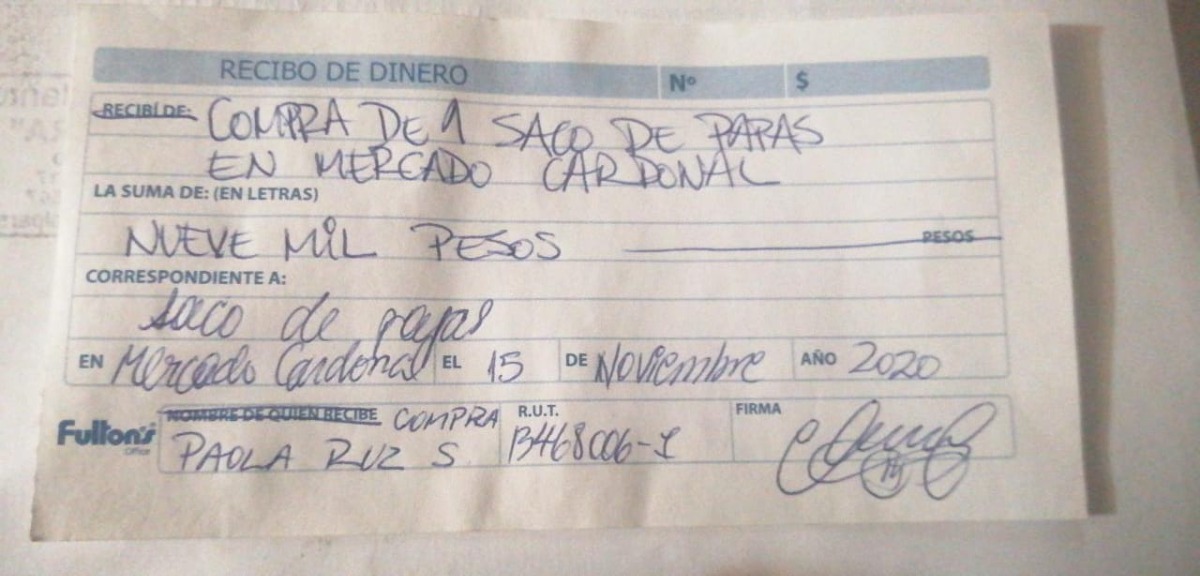 RECIBO DE DINERO Nº $
RECIBÍ DE: COMPRA DE 1 SACO DE PAPAS
EN MERCADO CARDONAL
LA SUMA DE: (EN LETRAS)
NUEVE MIL PESOS PESOS
CORRESPONDIENTE A:
saco de papas
EN Mercado Cardonal EL 15 DE Noviembre AÑO 2020
NOMBRE DE QUIEN RECIBE COMPRA R.U.T. FIRMA
PAOLA RUZ S 13468006-1
Fulton's
Office